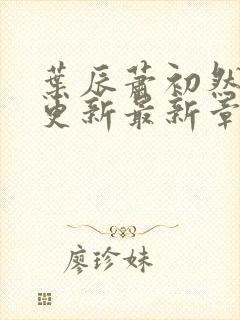 葉辰蕭初然
更新最新章
廖珍妹